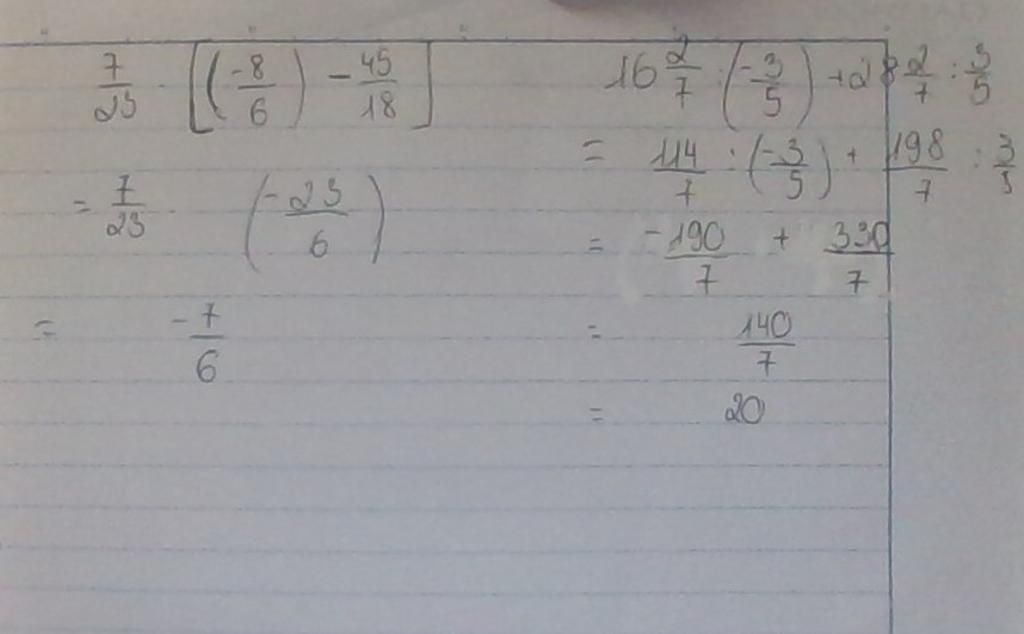 7/23 · [(-8/6) - 45/18]
= 7/23 (-23/6)
= -7/6
16 2/7 : (-3/5) + 28 2/7 : 3/5
= 114/7 : (-3/5) + 198/7 : 3/5
= -190/7 + 330/7
= 140/7
= 20